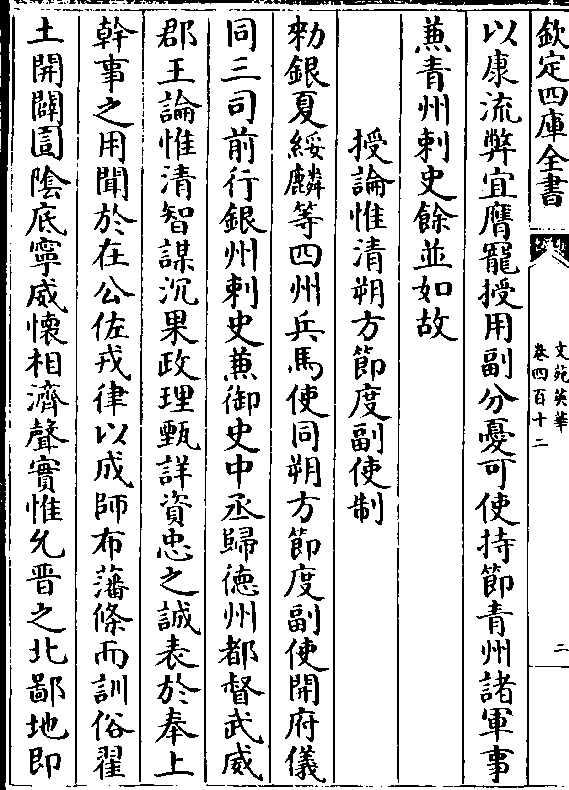 欽定四庫全書
文苑英華
卷四百十二
二
以康流弊宜膺寵授用副分憂可使持節青州諸軍事
兼青州刺史餘並如故
授論惟清朔方節度副使制
勅銀夏綏麟等四州兵馬使同朔方節度副使開府儀
同三司前行銀州刺史兼御史中丞歸德州都督武威
郡王論惟清智謀沉果政理甄詳資忠之誠表於奉上
幹事之用聞於在公佐戎律以成師布藩條而訓俗翟
土開闢圁陰底寧威懐相濟聲實惟允晋之北鄙地即